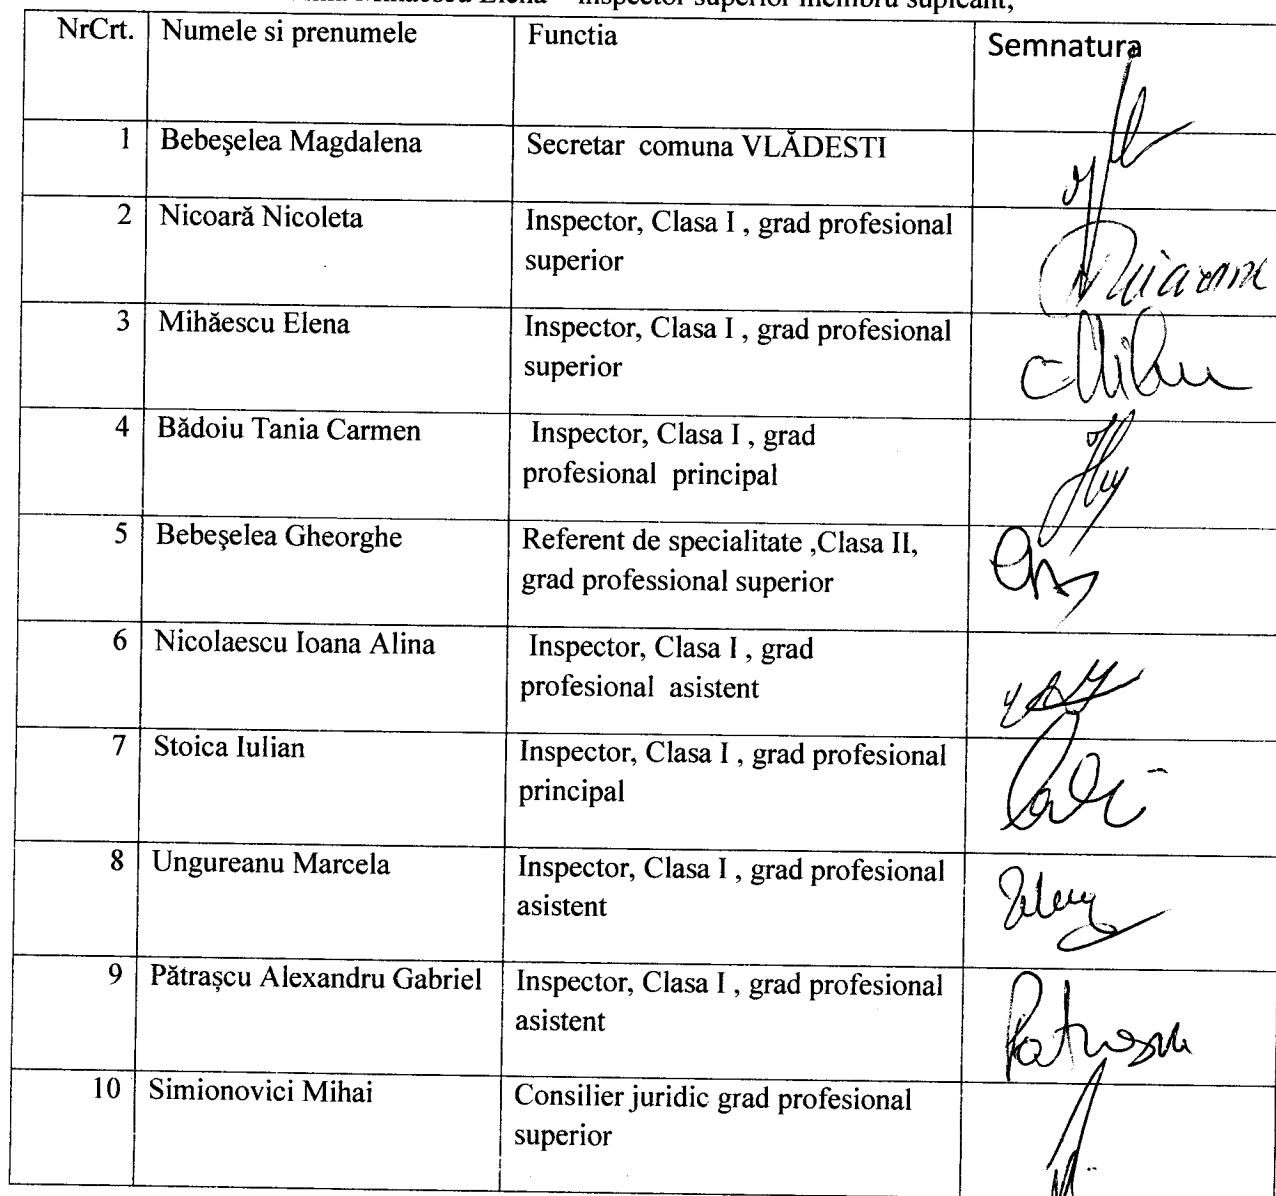 Elena – inspector superior membru suplcant;
NrCrt. Numele si prenumele Functia Semnatura
1 Bebeşelea Magdalena Secretar comuna VLĂDESTI
2 Nicoară Nicoleta Inspector, Clasa I , grad profesional
superior
3 Mihăescu Elena Inspector, Clasa I , grad profesional
superior
4 Bădoiu Tania Carmen Inspector, Clasa I , grad
profesional principal
5 Bebeşelea Gheorghe Referent de specialitate ,Clasa II,
grad professional superior
6 Nicolaescu Ioana Alina Inspector, Clasa I , grad
profesional asistent
7 Stoica Iulian Inspector, Clasa I , grad profesional
principal
8 Ungureanu Marcela Inspector, Clasa I , grad profesional
asistent
9 Pătrașcu Alexandru Gabriel Inspector, Clasa I , grad profesional
asistent
10 Simionovici Mihai Consilier juridic grad profesional
superior